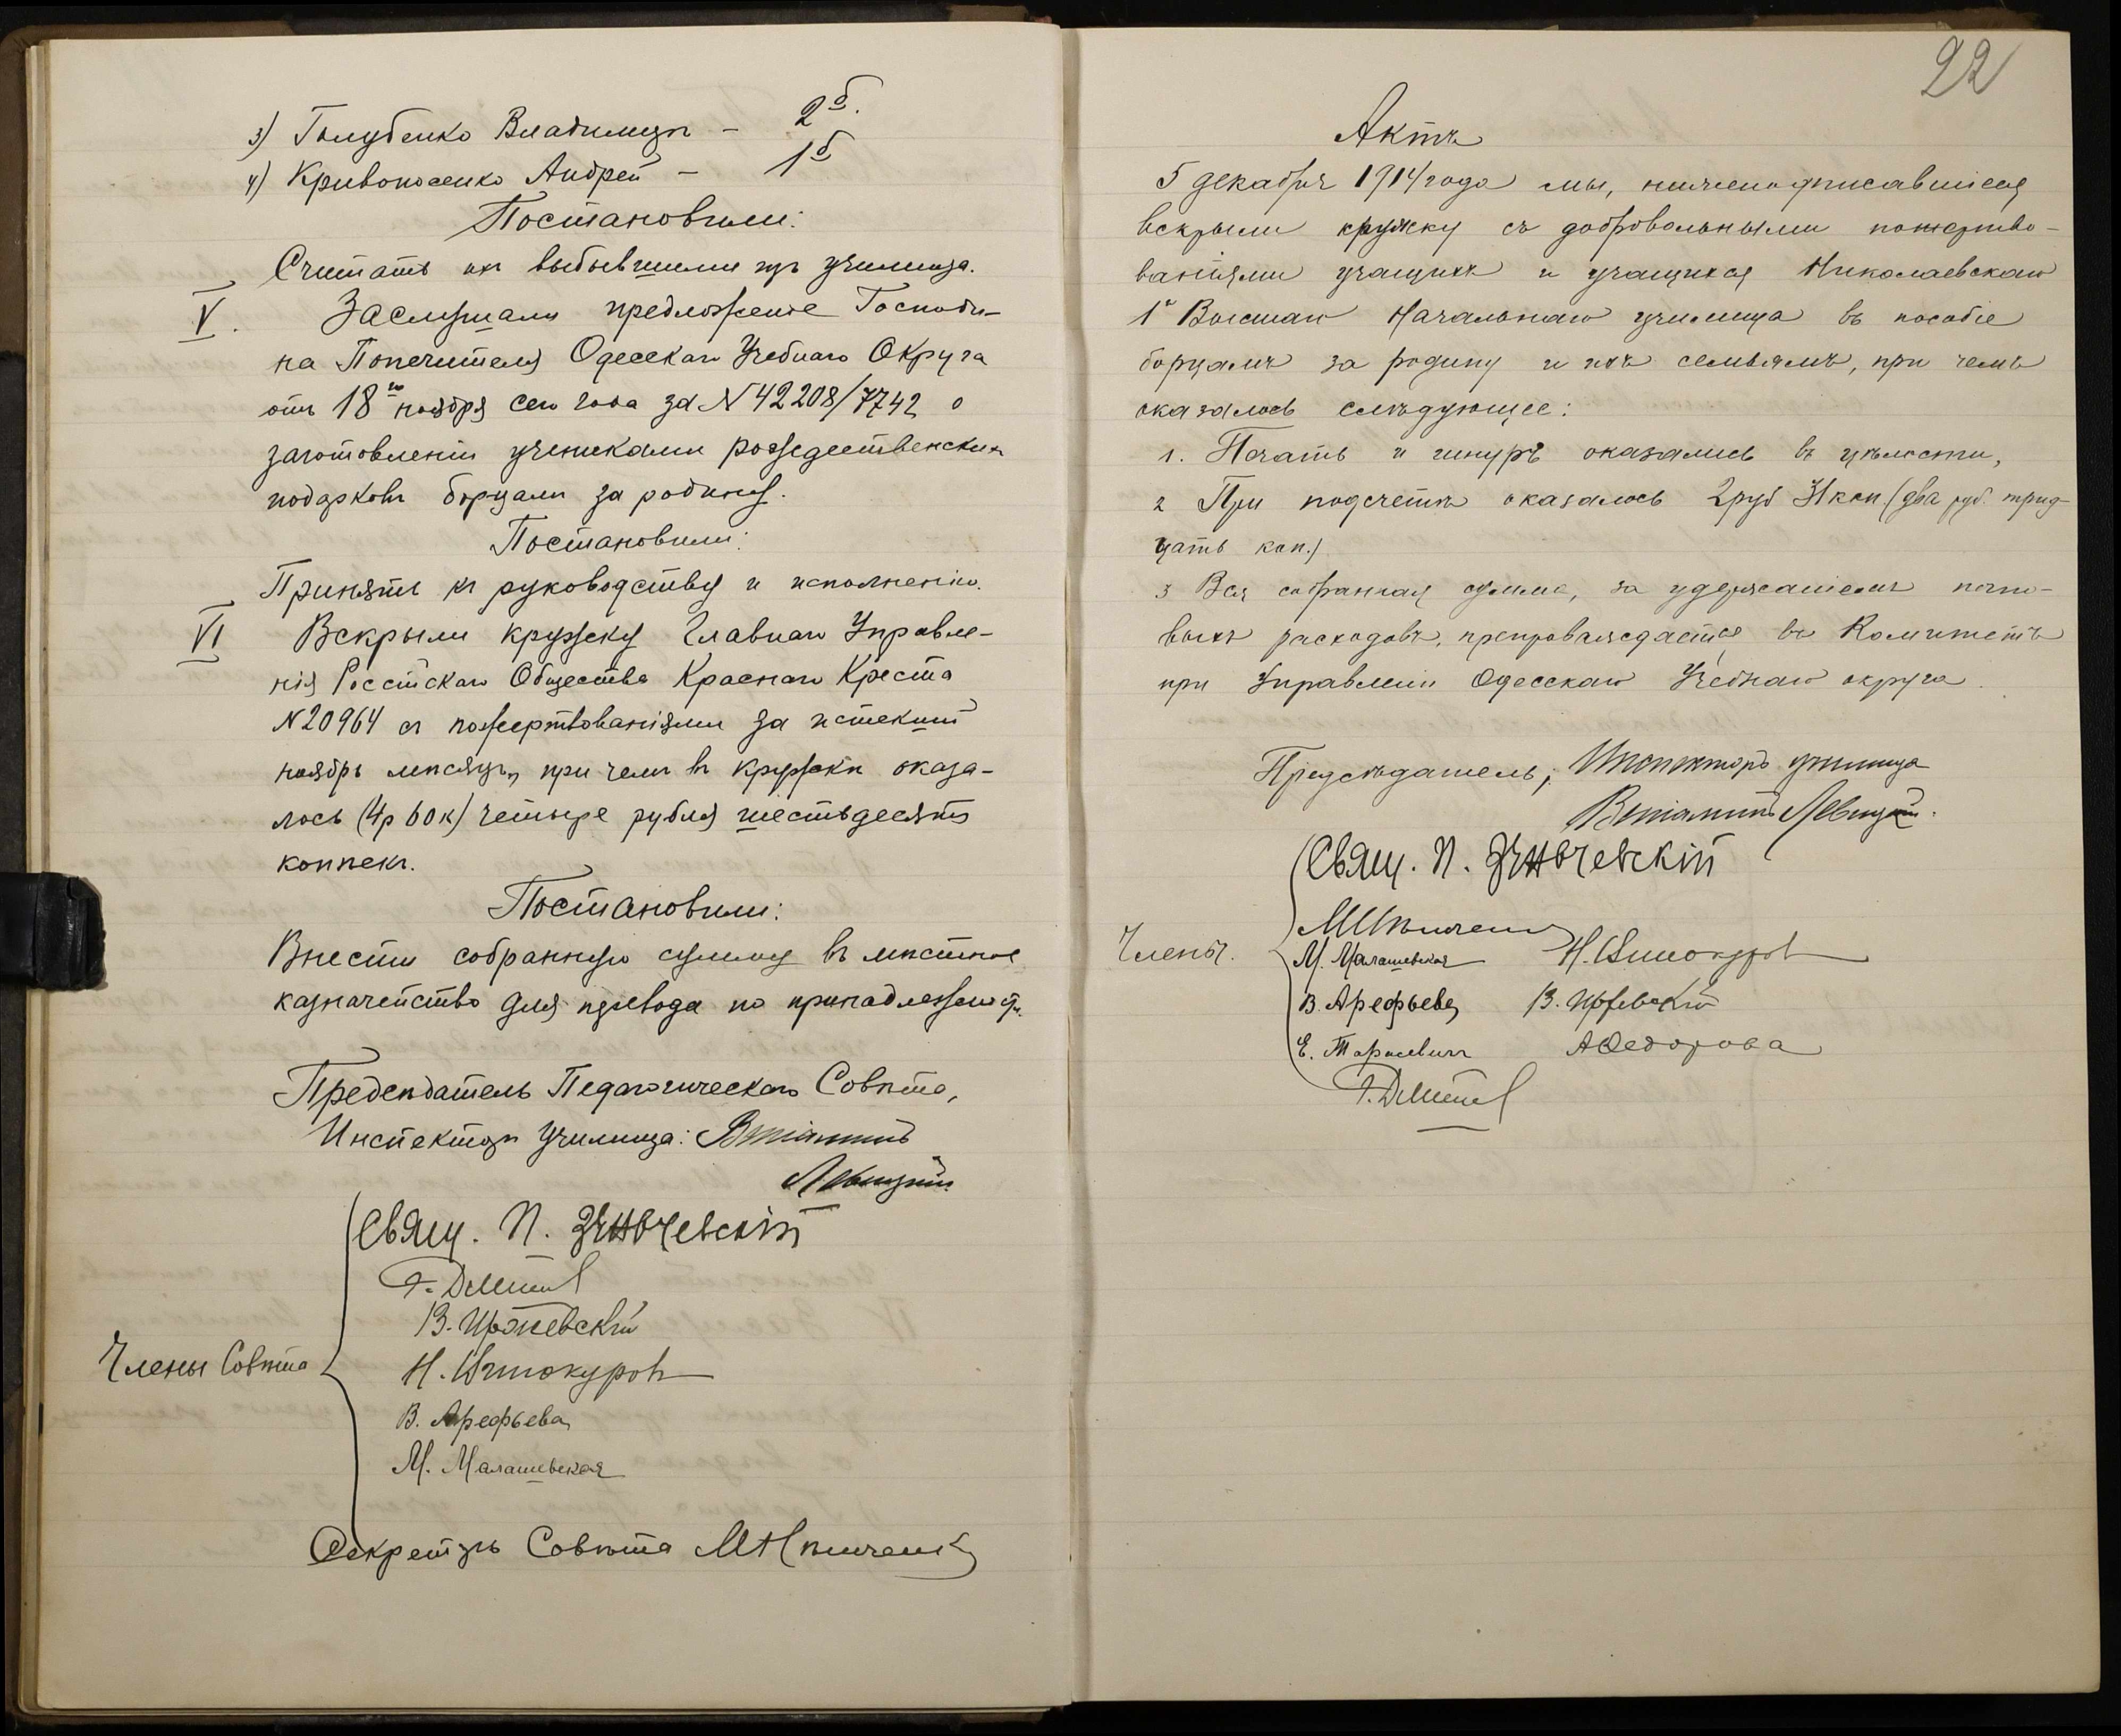 3) Голубенко Владимиръ – 2б.
4) Кривоносенко Андрей – 1б
Постановили:
Считать ихъ выбывшими изъ училища.
V. Заслушали предложеніе Господи-
на Попечителя Одесскаго Учебнаго Округа
отъ 18го ноября сего года за N 42208/7742 о
заготовленіи учениками рождественскихъ
подарковъ борцамъ за родину.
Постановили:
Принять къ руководству и исполненію.
VI Вскрыли кружку Главнаго Управле-
нія Россійскаго Общества Краснаго Креста
N 20964 съ пожертвованіями за истекшій
ноябрь мѣсяцъ, при чемъ въ кружкѣ оказа-
лось (4р 60к) четыре рубля шестьдесятъ
копѣекъ.
Постановили:
Внести собранную сумму въ мѣстное
казначейство для перевода по принадлежности.
Предсѣдатель Педагогическаго Совѣта,
Инспекторъ училища: Веніаминъ
Левицкій
Члены Совѣта
Свящ. П.
В.
Н. Винокуровъ
В. Арефьева
М. Малашевская
Секретарь Совѣта
22
Актъ
5 декабря 1914 года мы, нижеподписавшіеся
вскрыли кружку съ добровольными пожертво-
ваніями учащихъ и учащихся Николаевскаго
1го Высшаго Начальнаго училища въ пособіе
борцамъ за родину и ихъ семьямъ, при чемъ
оказалось слѣдующее:
1. Печать и шнуръ оказались въ цѣлости,
2 При подсчетѣ оказалось 2 руб 31 коп (два руб. трид-
цать коп.)
3 Вся собранная сумма, за удержаніемъ почто-
выхъ расходовъ, препровождается въ Комитетъ
при Управленіи Одесскаго Учебнаго округа.
Предсѣдатель, Инспекторъ училища
Веніаминъ Левицкій.
Свящ. П.
Члены.
М. Малашевская Н. Винокуровъ
В. Арефьева В.
Е. Тарасевичъ А Федорова